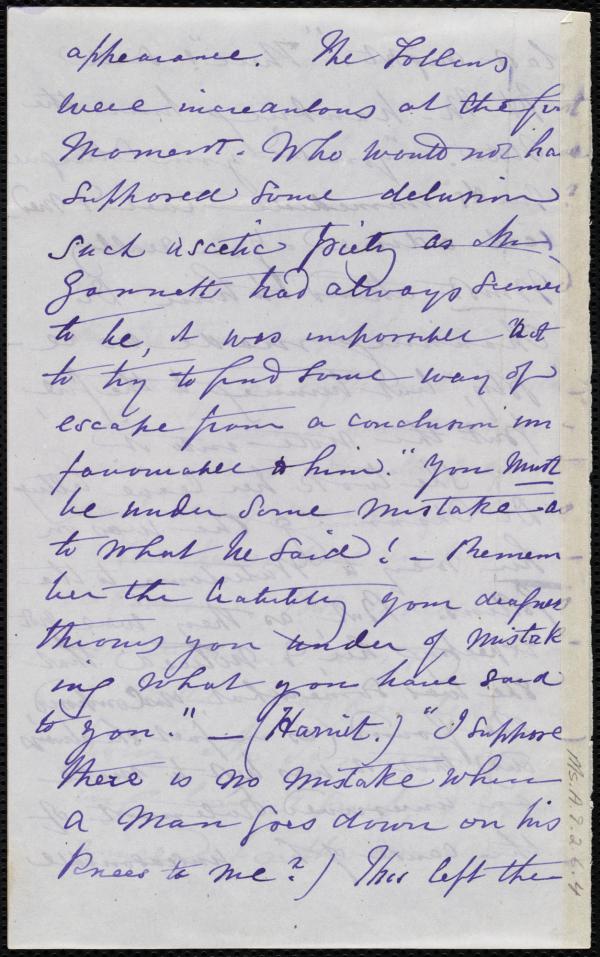 appearance. The Follens
were incredulous at the fir
moment. Who would not ha
supposed some delusion
such ascetic piety as Mr.
Gannett had always seemed
to be, it was impossible not
to try to find some way of
escape from a conclusion un
favourable to him. "You must
be under some mistake as
to what he said! - Remem
ber the liability your deafness
throws you under of mistak
ing what you have said
to you." - (Harriet.) "I suppose
there is no mistake when
a man goes down on his
knees to me?) This left the
Ms.A.9.2.6.4